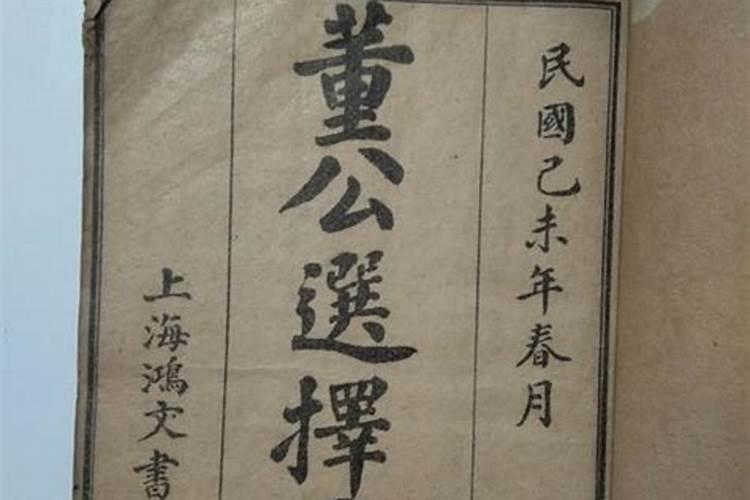 民國己未年春月
董公選擇
上海鴻文書